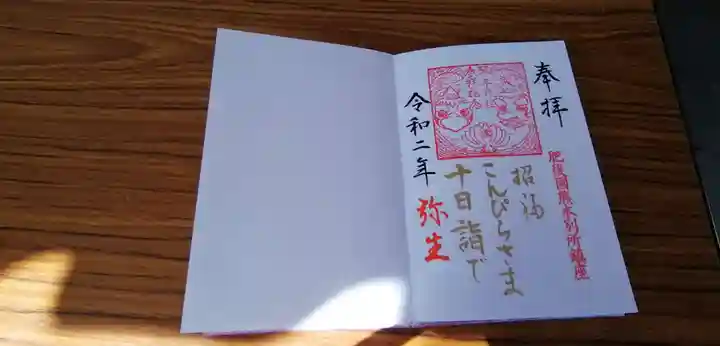 奉拝
肥後国熊本別所鎮座
招福
こんぴらさま
十日詣で
令和二年 弥生